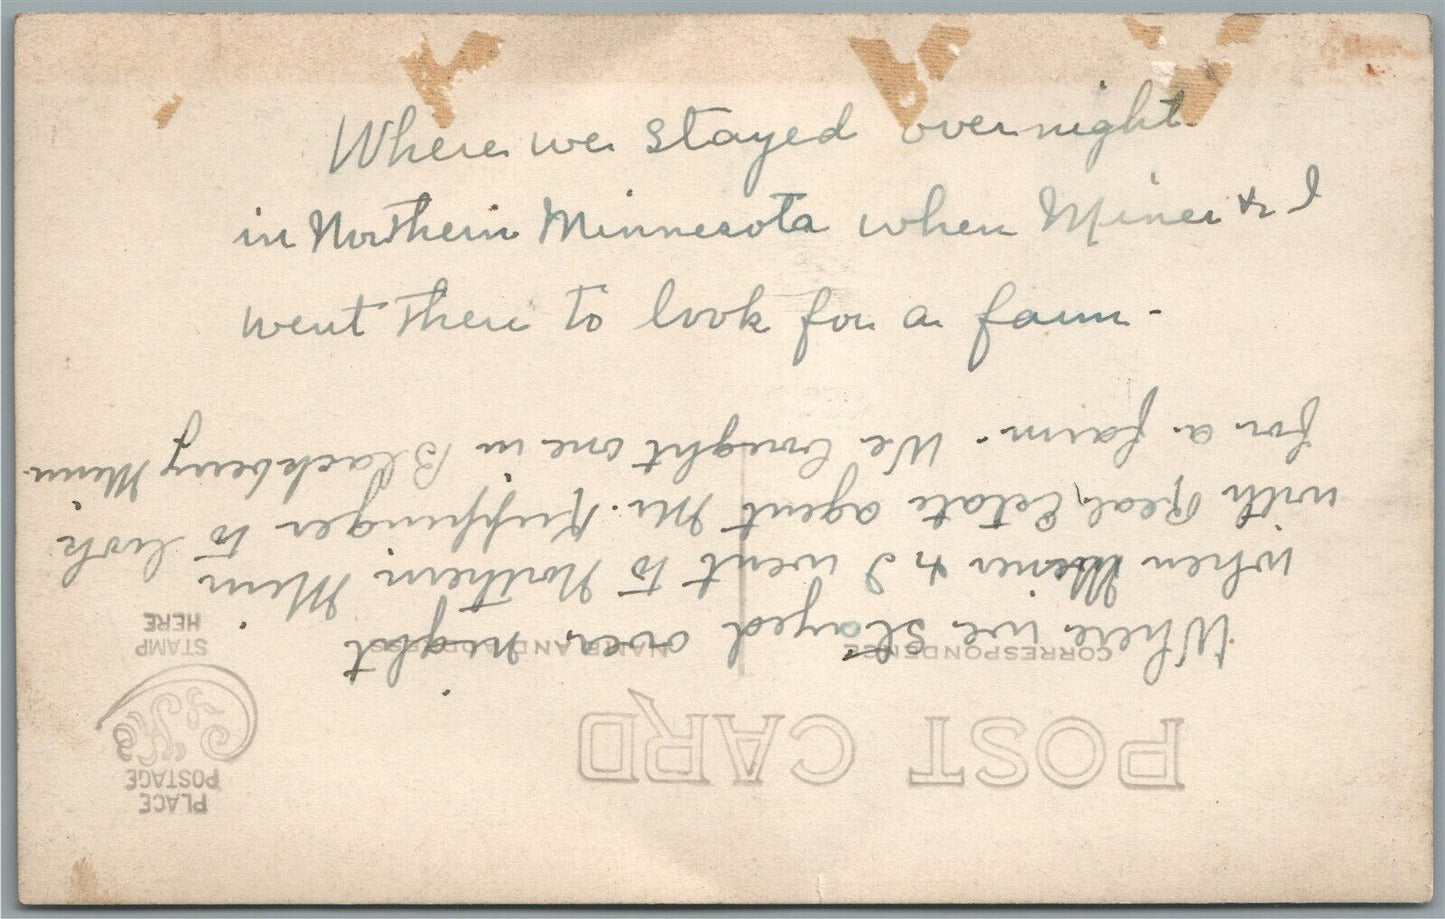 Where we stayed over night
in Northern Minnesota when Miner & I
went there to look for a farm.
POST CARD
CORRESPONDENCE
NAME AND ADDRESS
PLACE
POSTAGE
STAMP
HERE
Where we stayed over night
when Miner & I went to Northern Minn.
with Real Estate agent Mr. to look
for a farm. We bought one in Blackberry Minn.